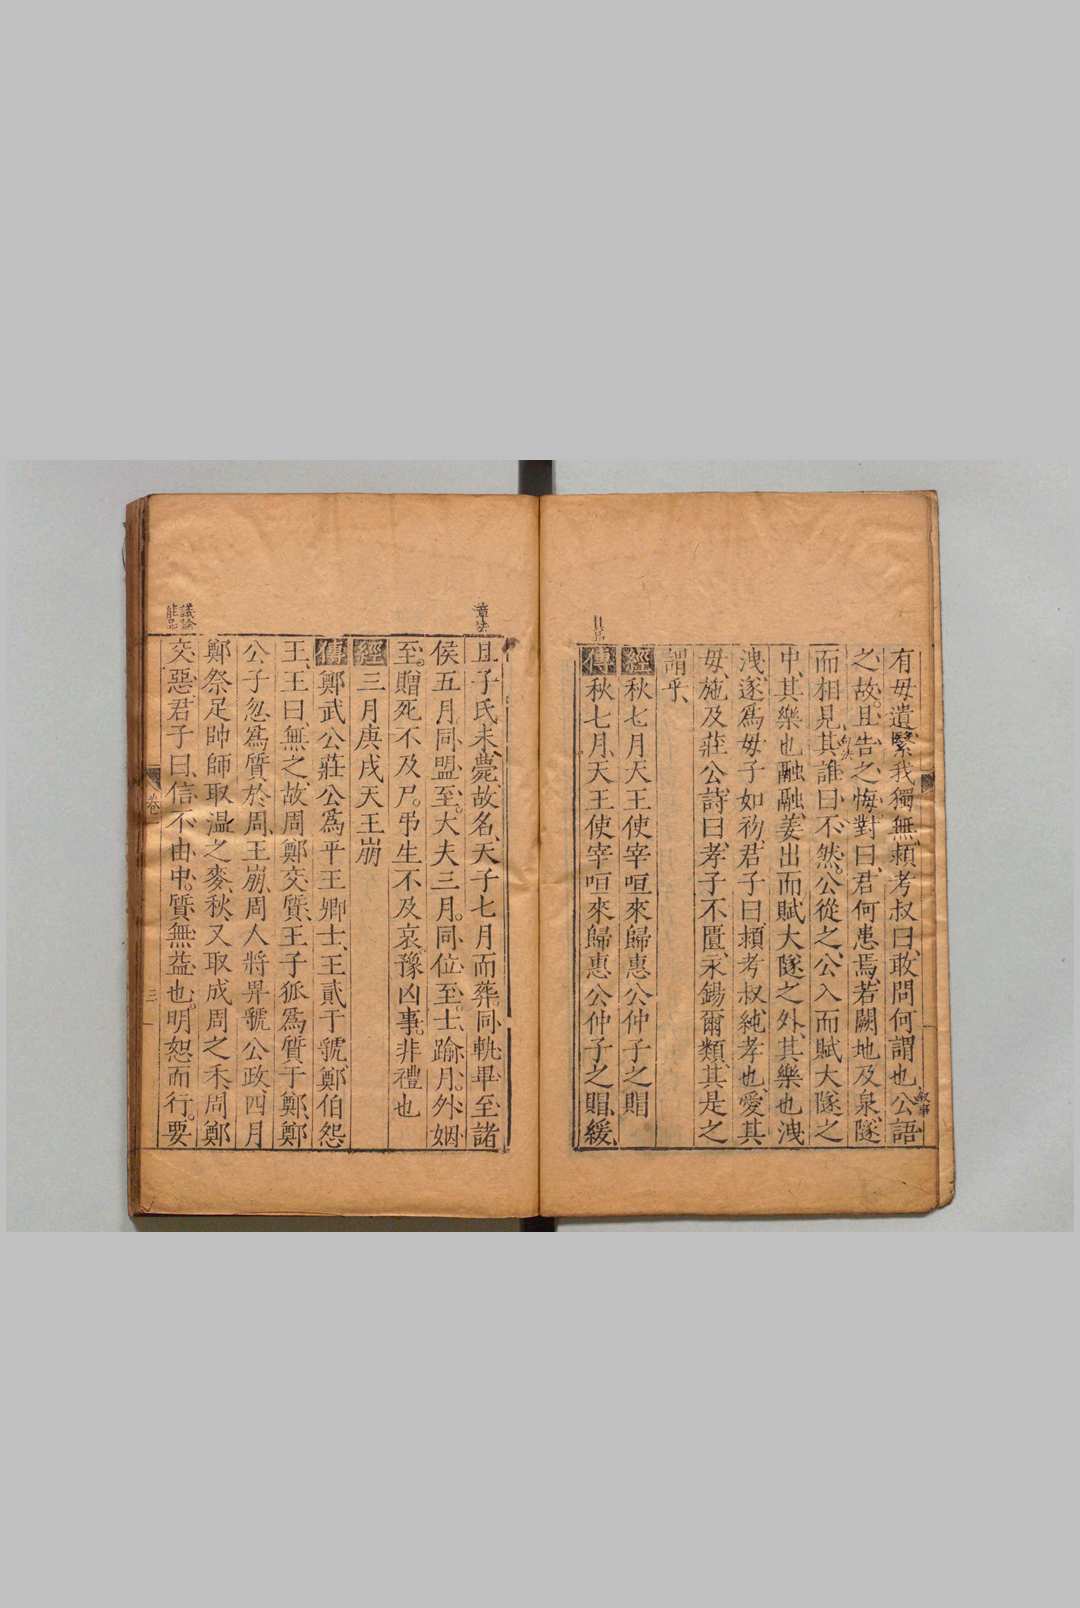 有母遺繄我獨無潁考叔曰敢問何謂也公語
之故且告之悔對曰君何患焉若闕地及泉隧
而相見其誰曰不然公從之公入而賦大隧之
中其樂也融融姜出而賦大隧之外其樂也洩
洩遂爲母子如初君子曰潁考叔純孝也愛其
母施及莊公詩曰孝子不匱永錫爾類其是之
謂乎
經秋七月天王使宰咺來歸惠公仲子之賵
傳秋七月天王使宰咺來歸惠公仲子之賵緩
叙事
句法
章法
且子氏未薨故名天子七月而葬同軌畢至諸
侯五月同盟至大夫三月同位至士踰月外姻
至贈死不及尸弔生不及哀豫凶事非禮也
經三月庚戌天王崩
傳鄭武公莊公爲平王卿士王貳于虢鄭伯怨
王王曰無之故周鄭交質王子狐爲質于鄭鄭
公子忽爲質於周王崩周人將畀虢公政四月
鄭祭足帥師取溫之麥秋又取成周之禾周鄭
交惡君子曰信不由中質無益也明恕而行要
議論
能品
卷
三